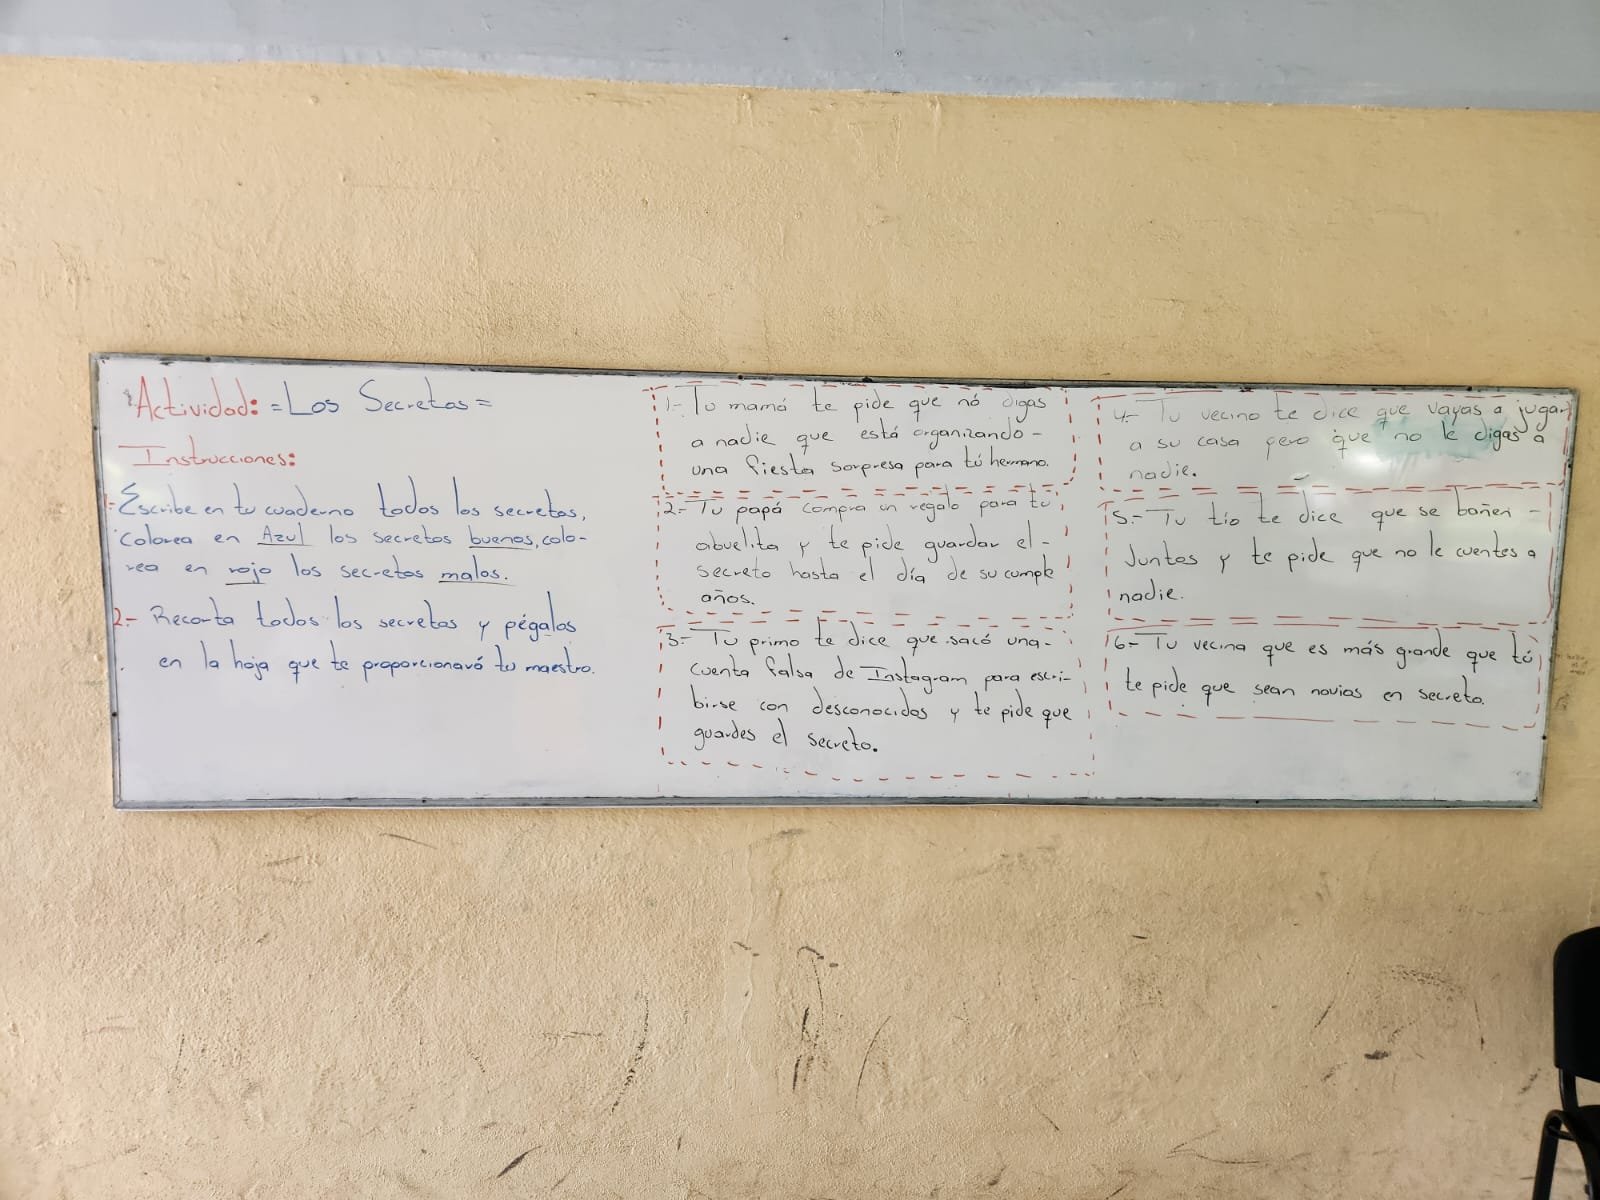 Actividad: =Los Secretos=
Instrucciones:
1.- Escribe en tu cuaderno todos los secretos,
Colorea en Azul los secretos buenos, colo-
rea en rojo los secretos malos.
2.- Recorta todos los secretos y pégalos
en la hoja que te proporcionará tu maestro.
1.- Tu mamá te pide que nó digas
a nadie que está organizando-
una fiesta sorpresa para tú hermano.
2.- Tu papá compra un regalo para tu
abuelita y te pide guardar el-
secreto hasta el día de su cumple
años.
3.- Tu primo te dice que sacó una-
cuenta falsa de Instagram para escri-
birse con desconocidos y te pide que
guardes el secreto.
4.- Tu vecino te dice que vayas a jugar
a su casa pero que no le digas a
nadie.
5.- Tu tío te dice que se bañen-
Juntos y te pide que no le cuentes a
nadie.
6.- Tu vecina que es más grande que tú
te pide que sean novios en secreto.